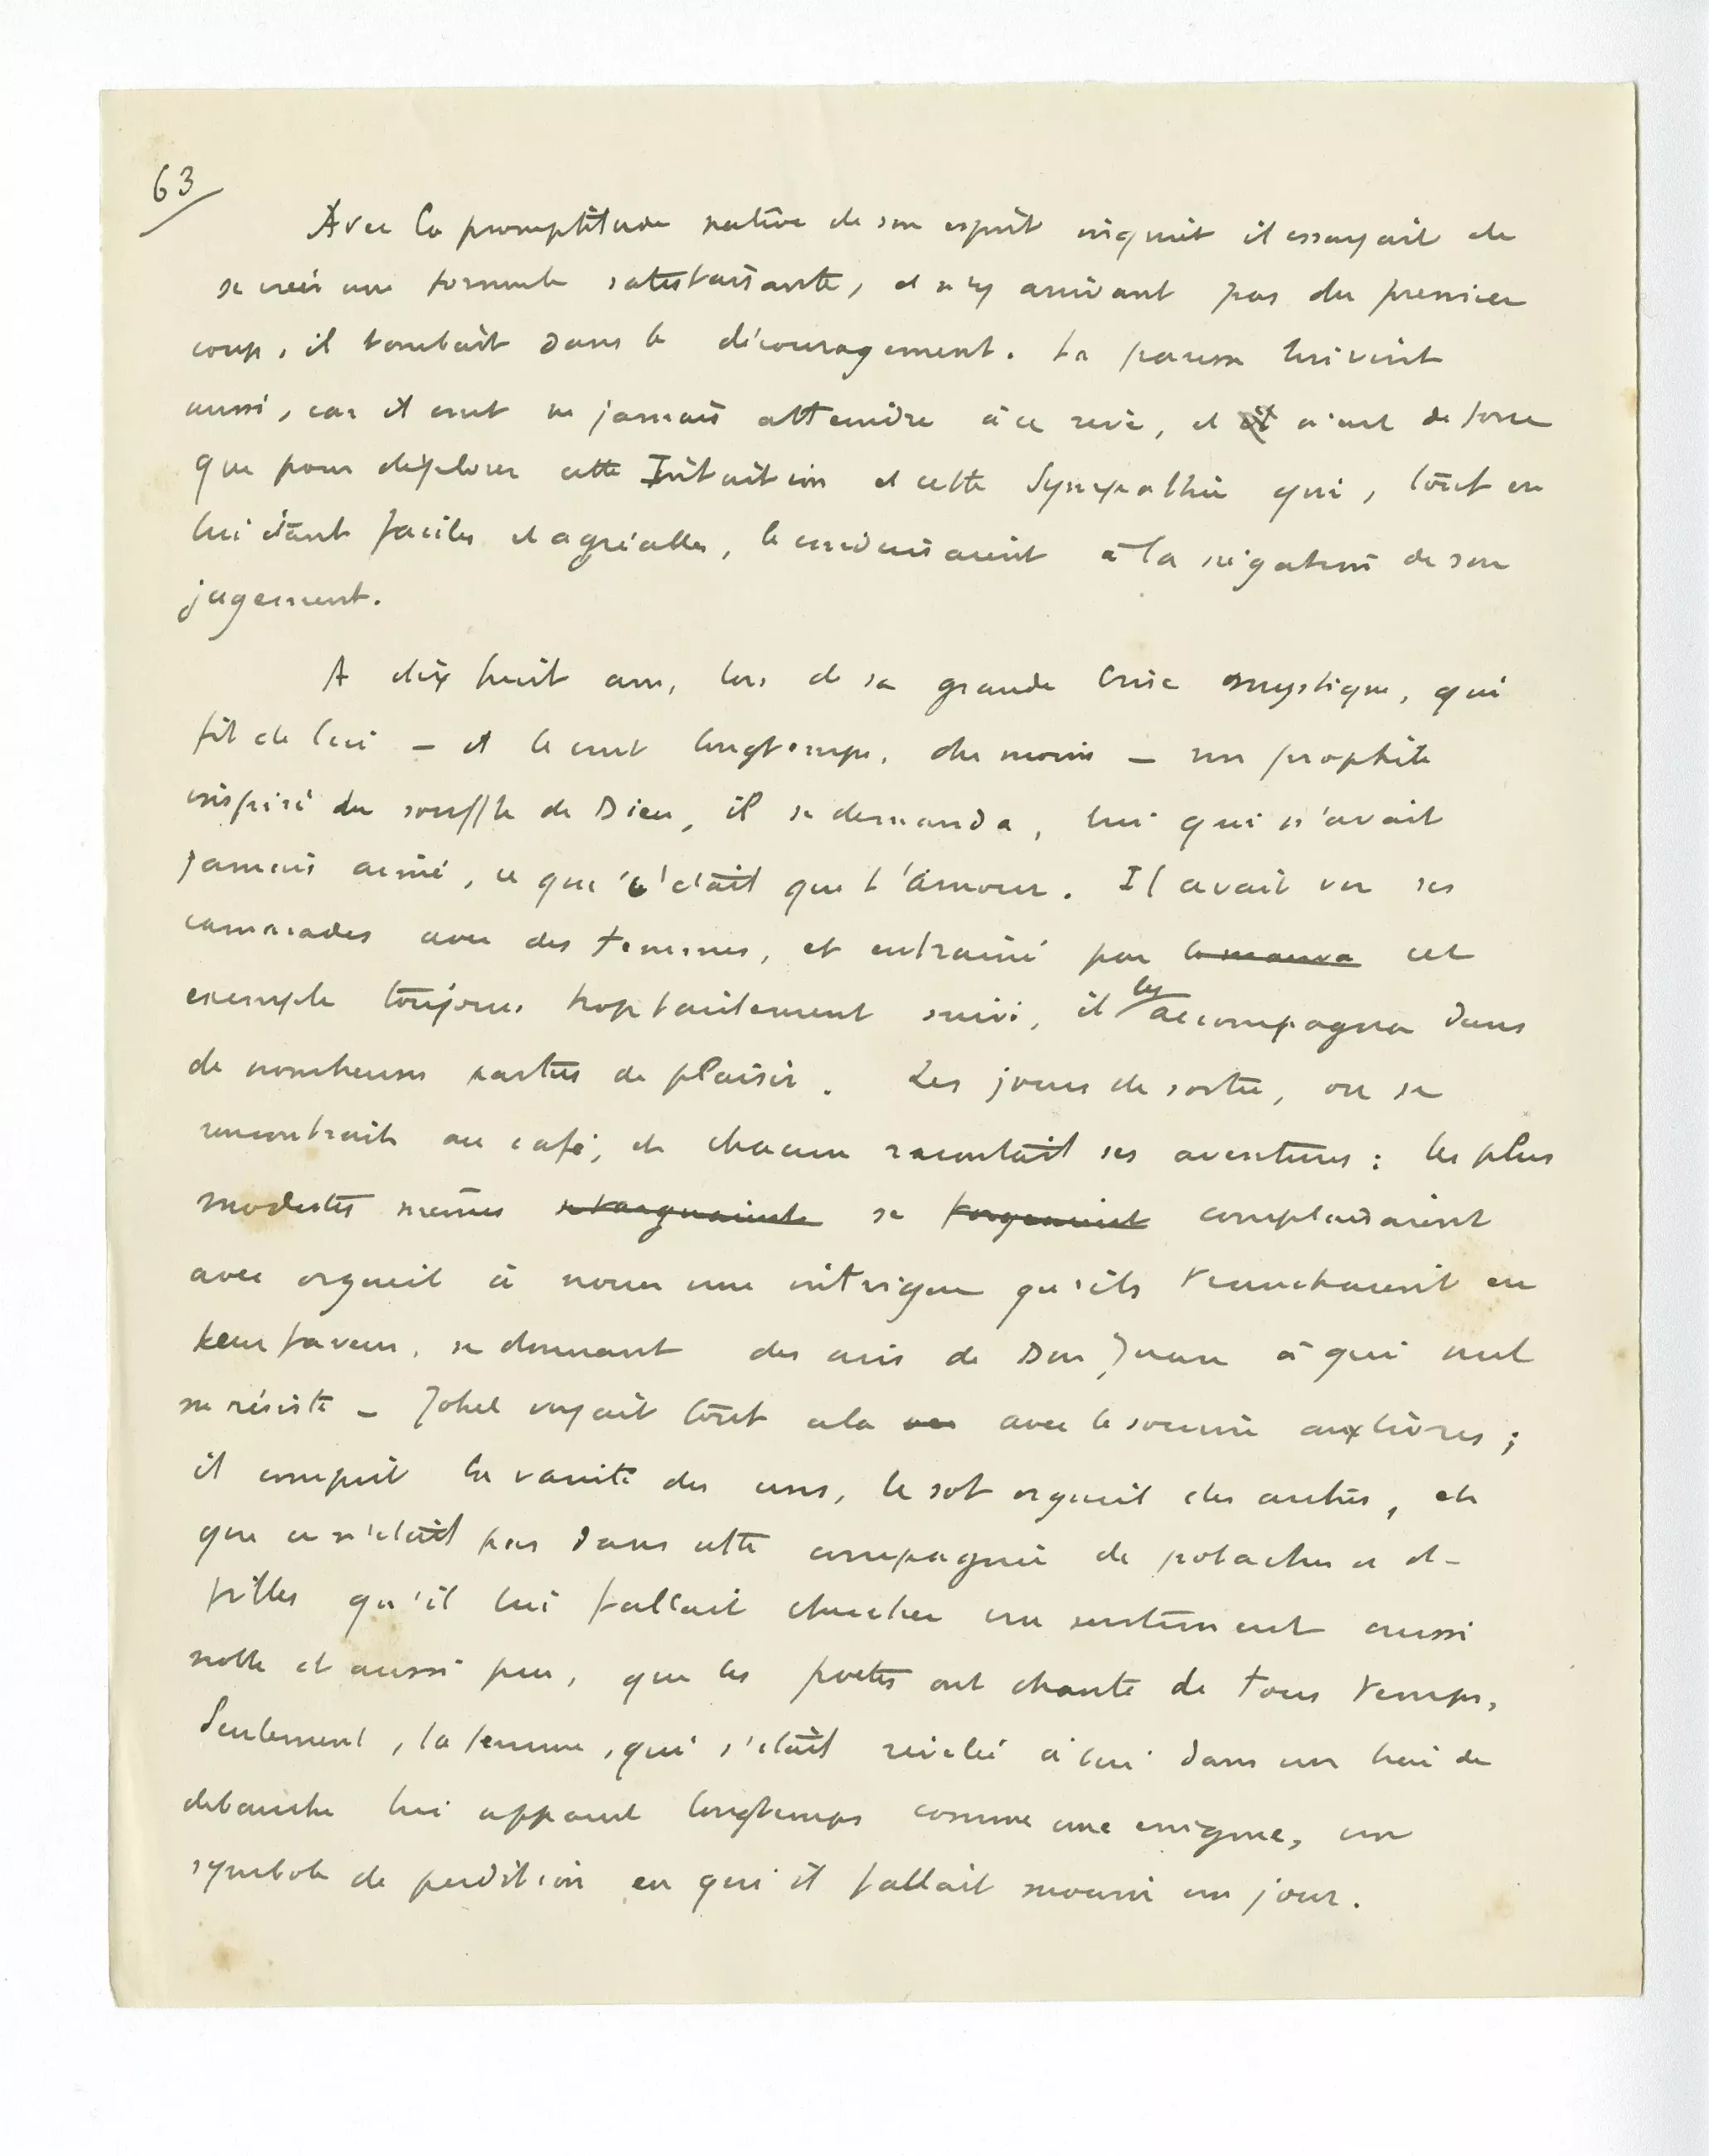 63
Avec la promptitude native de son esprit inquiet il essayait de
se créer une formule satisfaisante, et n'y arrivant pas du premier
coup, il tombait dans le découragement. La paresse lui vint
aussi, car il crut ne jamais atteindre à ce rêve, et il n'eut de force
que pour déplorer cette Intuition et cette Sympathie qui, tout en
lui étant faciles et agréables, le conduisaient à la négation de son
jugement.
A dix huit ans, lors de sa grande crise mystique, qui
fit de lui – il le crut longtemps, du moins – un prophète
inspiré du souffle de Dieu, il se demanda, lui qui n'avait
jamais aimé, ce que c'était que l'Amour. Il avait vu ses
camarades avec des femmes, et entrainé par le mauva cet
exemple toujours trop facilement suivi, il les accompagna dans
de nombreuses parties de plaisir. Les jours de sortie, on se
rencontrait au café, et chacun racontait ses aventures : les plus
modestes mêmes se targuaient se forgeaient complaisaient
avec orgueil à nouer une intrigue qu'ils trancheraient en
leur faveur, se donnant des airs de Don Juan à qui nul
ne résiste – Johel voyait tout cela avec le sourire aux lèvres ;
il comprit la vanité des uns, le sot orgueil des autres, et
que ce n'était pas dans cette compagnie de potaches et de
filles qu'il lui fallait chercher un sentiment aussi
noble et aussi pur, que les poètes ont chanté de tous temps.
Seulement, la femme, qui s'était révélée à lui dans un lieu de
débauche lui apparut longtemps comme une enigme, un
symbole de perdition en qui il fallait mourir un jour.